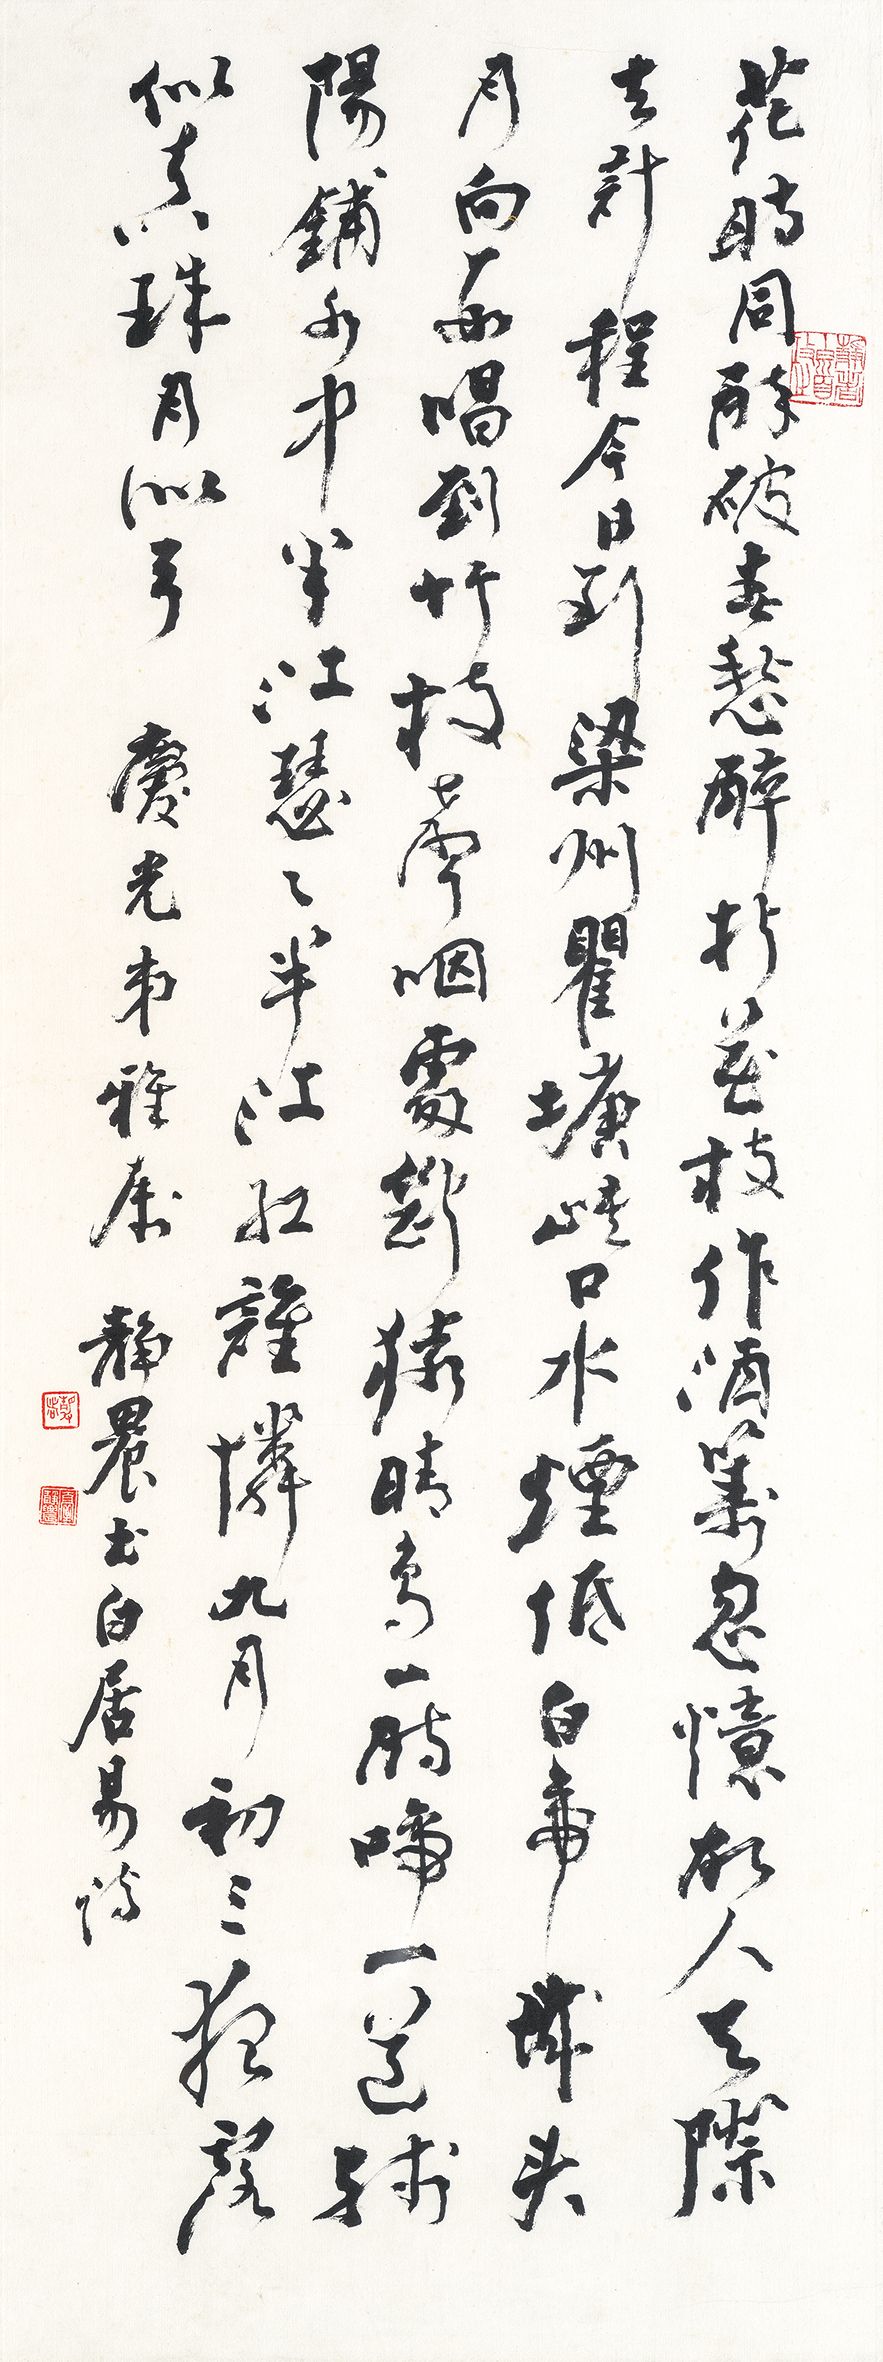 花時同醉破春愁醉折花枝作酒籌忽憶故人天際
去計程今日到梁州瞿塘峽口水煙低白帝城头
月向西唱到竹枝聲咽處斷猿晴鳥一時啼一道殘
陽鋪水中半江瑟々半江紅誰憐九月初三夜露
似真珠月似弓 慶光弟雅屬 靜農書白居易詩